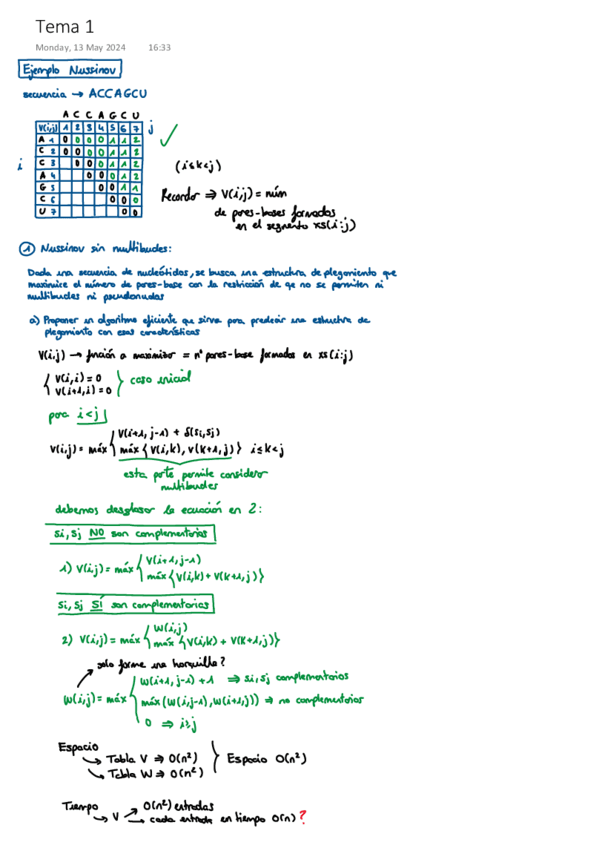 Tema 1
Monday, 13 May 2024 16:33
Ejemplo Nussinov
secuencia → ACCAGCU
A C C A G C U
V(i,j) 1 2 3 4 5 6 7 j
A 1 0 0 0 0 1 1 2
C 2 0 0 0 0 1 1 2
i C 3 0 0 0 1 1 2
A 4 0 0 0 1
G 5 0 0 1 1
C 6 0 0 0
U 7 0 0
(i≤k<j)
Recordar ⇒ V(i,j) = núm
de pares-bases formados
en el segmento xs(i:j)
1 Nussinov sin multibucles:
Dada una secuencia de nucleótidos, se busca una estructura de plegamiento que
maximice el número de pares-base con la restricción de qe no se permiten ni
multibucles ni pseudonudos
a) Proponer un algoritmo eficiente que sirva para predecir una estructura de
plegamiento con esas características
V(i,j) → función a maximizar = nº pares-base formados en xs(i:j)
{ V(i,i) = 0
V(i+1,i) = 0 } caso inicial
para i<j
V(i,j) = máx { V(i+1, j-1) + δ(si,sj)
máx { V(i,k), V(k+1,j) } i≤k<j
esta parte permite considerar
multibucles
debemos desglosar la ecuación en 2:
si, sj NO son complementarios
1) V(i,j) = máx { V(i+1,j-1)
máx { V(i,k) + V(k+1,j) }
si, sj SÍ son complementarios
2) V(i,j) = máx { W(i,j)
máx { V(i,k) + V(k+1,j) }
solo forma una horquilla?
W(i,j) = máx { W(i+1, j-1) + 1 ⇒ si,sj complementarios
máx (W(i,j-1), W(i+1,j)) ⇒ no complementarios
0 ⇒ i≥j
Espacio
→ Tabla V ⇒ O(n²)
→ Tabla W ⇒ O(n²) } Espacio O(n²)
Tiempo
→ V → O(n²) entradas
→ cada entrada en tiempo O(n) ?